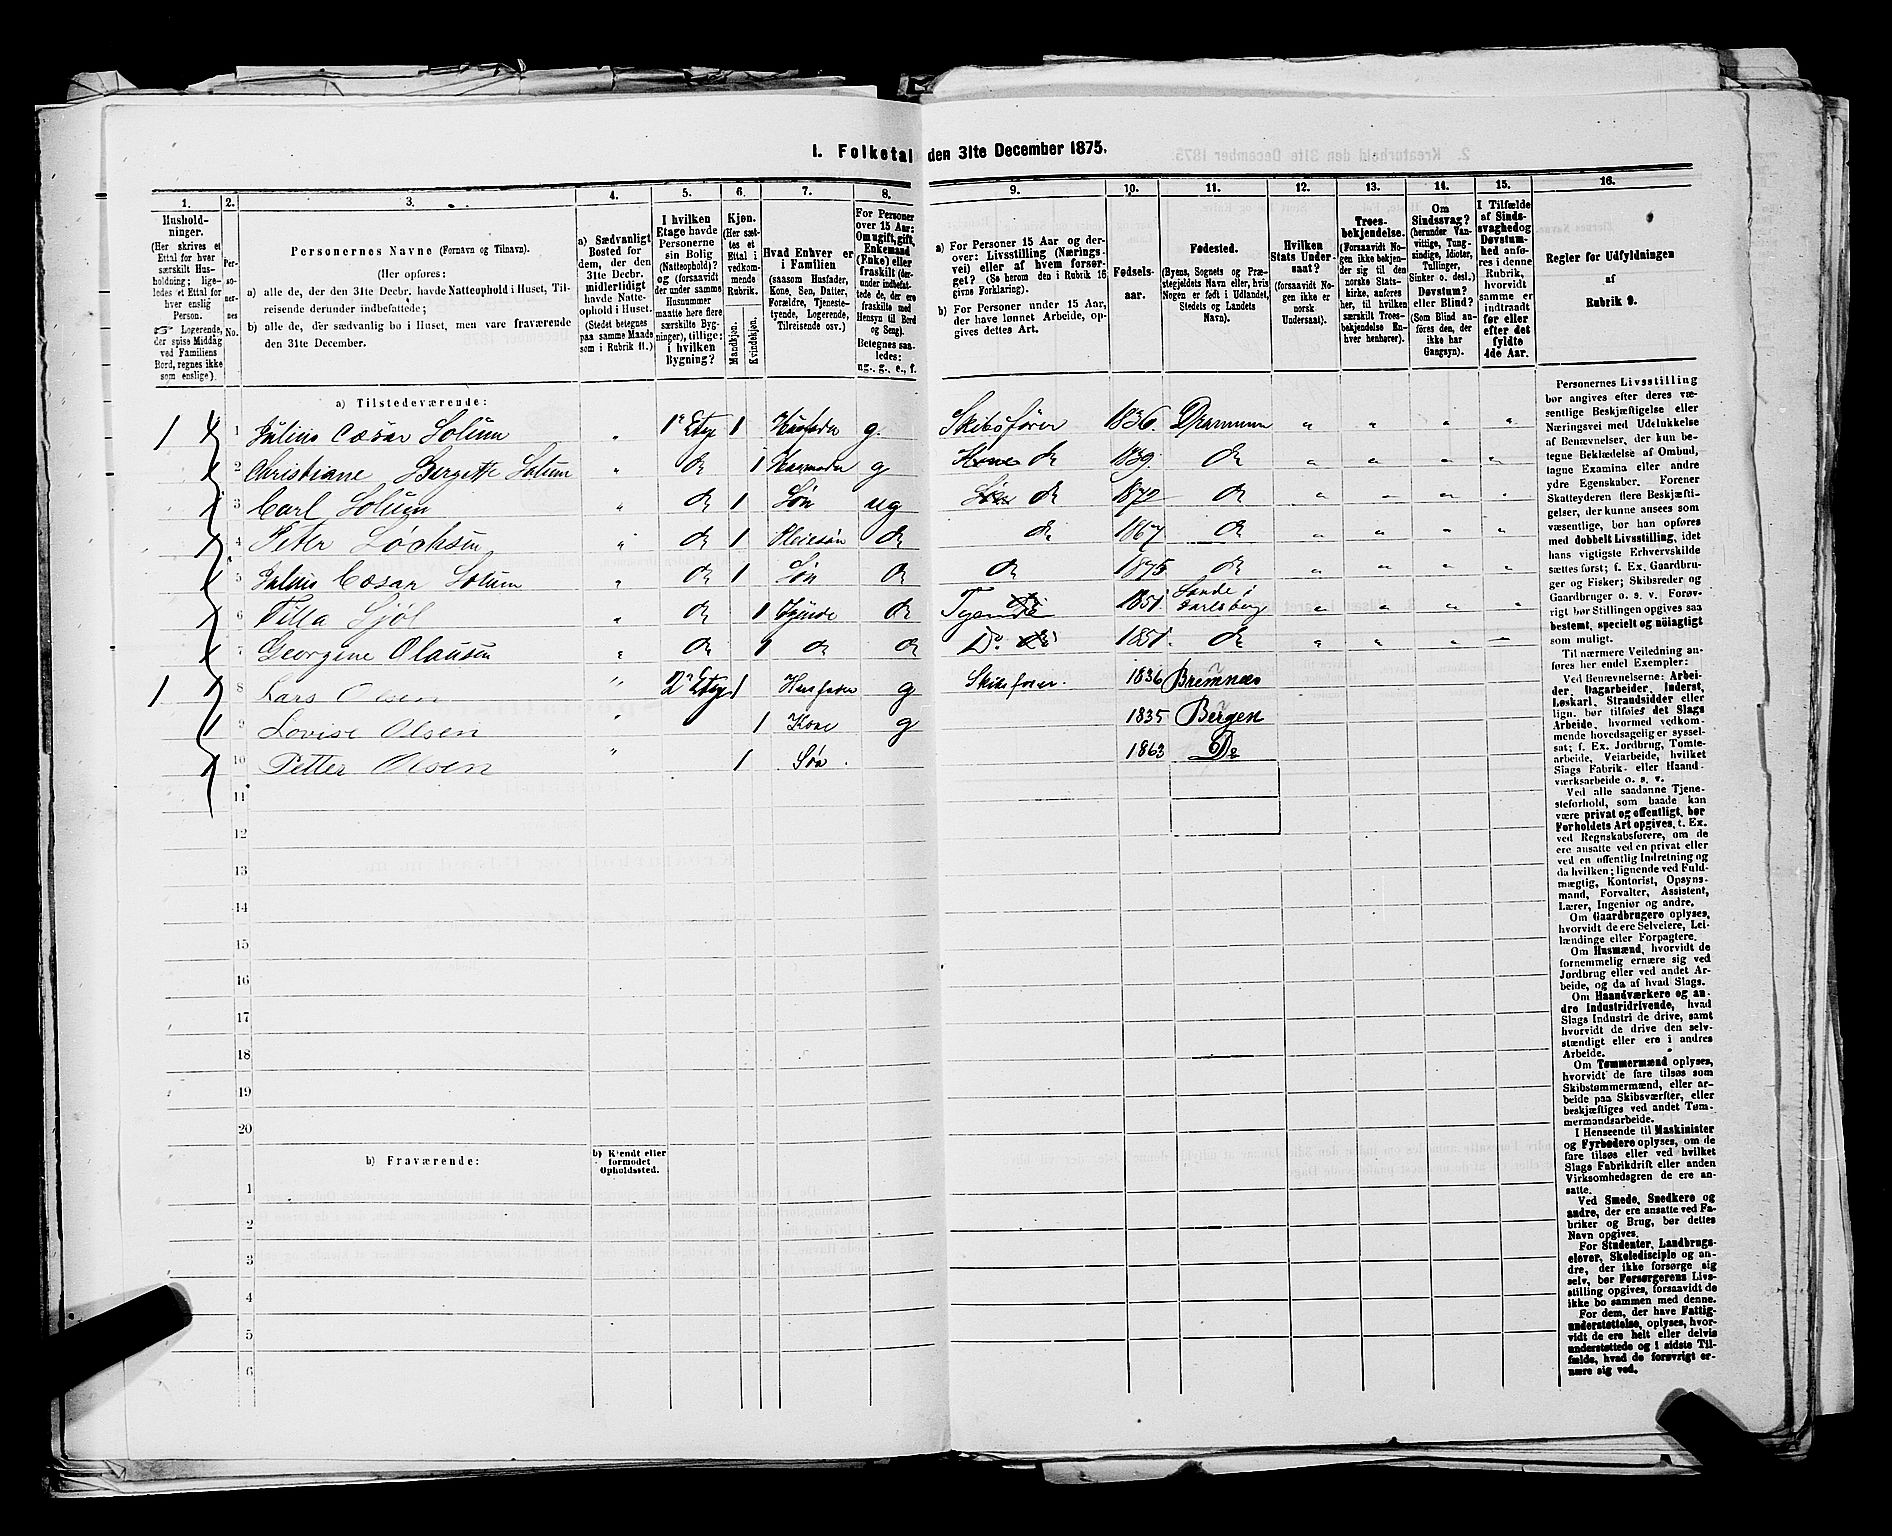 1. Folketal den 31te December 1875.
1. 2. 3. 4. 5. 6. 7. 8. 9. 10. 11. 12. 13. 14. 15. 16.
Hushold-
ninger.
(Her skrives et
Ettal for hver
særskilt Hus-
holdning; lige-
ledes et Ettal for
hver enslig
Person.
☞ Logerende,
der spise Middag
ved Familiens
Bord, regnes ikke
som enslige).
Per-
so-
ner-
nes
No.
Personernes Navne (Fornavn og Tilnavn).
(Her opføres:
a) alle de, der den 31te Decbr. havde Natteophold i Huset, Til-
reisende derunder indbefattede;
b) alle de, der sædvanlig bo i Huset, men vare fraværende
den 31te December.
a) Sædvanligt
Bosted for
dem, der den
31te Decbr.
midlerligidst
havde Natte-
ophold i Huset.
(Stedet betegnes
paa samme Maade
som i Rubrik 11.)
I hvilken
Etage havde
Personerne
sin Bolig
(Natteophold)?
og (forsaavidt
der under samme
Husnummer
maatte høre flere
særskilte Byg-
ninger), tillige:
i hvilken
Bygning?
Kjøn.
(Her sæt-
tes et
Ettal i
vedkom-
mende
Rubrik.
Mandkjøn.
Kvindekjøn.
Hvad Enhver er
i Familien
(saasom Husfader,
Kone, Søn, Datter,
Forældre, Tjeneste-
tyende, Logerende,
Tilreisende osv.)
For Personer
over 15 Aar:
Om ugift, gift,
Enkemand
(Enke) eller
fraskilt (der-
under indbefat-
tede de, der ere
fraskilte med
Hensyn til Bord
og Seng).
Betegnes saa-
ledes:
ug., g., e., f.
a) For Personer 15 Aar og der-
over: Livsstilling (Nærings-
vei) eller af hvem forsør-
get? (Se herom den i Rubrik 16
givne Forklaring).
b) For Personer under 15 Aar,
der have lønnet Arbeide, op-
gives dettes Art.
Fødsels-
aar.
Fødested.
(Byens, Sognets og Præ-
stegjeldets Navn eller, hvis
Nogen er født i Udlandet,
Stedets og Landets
Navn).
Hvilken
Stats Under-
saat?
(forsaavidt No-
gen ikke er
norsk
Undersaat).
Troes-
bekjendelse.
(Forsaavidt No-
gen ikke bekjen-
der sig til den
norske Stats-
kirke, anføres
her, til hvilken
særskilt Troes-
bekjendelse En-
hver henhører).
Om
Sindssvag?
(herunder Van-
vittige, Tung-
sindige, Idioter,
Tullinger,
Sinker o. desl.)
Døvstum?
eller Blind?
(Som Blind an-
føres den, der
ikke har
Gangsyn).
I Tilfælde
af Sinds-
svaghed og
Døvstum-
hed anfø-
res i denne
Rubrik,
hvorvidt
samme er
indtraadt
før eller
efter det
fyldte
4de Aar.
Regler for Udfyldningen
af
Rubrik 9.
a) Tilstedeværende:
1 1 Julius Cæsar Solum " 1ste Etage 1 Husfader g. Skibsfører 1836. Drammen " " " "
2 Christiane Bergette Solum " do 1 Husmoder g Kone do 1839. do " " " "
3 Carl Solum " do 1 Søn ug Søn do 1872 do " " " "
4 Peter Lochsen " do 1 Pleiesøn do do 1867 do " " " "
5 Julius Cæsar Solum " do 1 Søn do do 1875 do " " " "
6 Tilla Sjøl " do 1 Tyende do Tyende 1851. Sande i Jarlsberg " " " "
7 Georgine Olausen " do 1 do do Do do 1851. do " " " "
1 8 Lars Olsen " 2n Etage 1 Husfader g Skibsfører. 1836 Bremnæs
9 Lovise Olsen " 1 Kone g 1835 Bergen
10 Petter Olsen " 1 Søn. 1863 Do
11
12
13
14
15
16
17
18
19
20
b) Fraværende:
b) Kjendt eller
formodet
Opholdssted.
1
2
3
4
5
6
Personernes Livsstilling
bør angives efter deres væ-
sentlige Beskjæftigelse eller
Næringsvei med Udelukkelse
af Benævnelser, der kun be-
tegne Beklædelse af Ombud,
tagne Examina eller andre
ydre Egenskaber. Forener
Skatteyderen flere Beskjæfti-
gelser, der kunne ansees som
væsentlige, bør han opføres
med dobbelt Livsstilling, idet
hans vigtigste Erhvervskilde
sættes først; f. Ex. Gaardbru-
ger og Fisker; Skibsreder og
Gaardbruger o. s. v. Forøv-
rigt bør Stillingen opgives saa
bestemt, specielt og nøiagtigt
som muligt.
Til nærmere Veiledning an-
føres her endel Exempler:
Ved Benævnelserne: Arbei-
der, Dagarbeider, Inderst,
Løskarl, Strandsidder eller
lign. bør tilføies det Slags
Arbeide, hvormed vedkom-
mende hovedsagelig er syssel-
sat; f. Ex. Jordbrug, Tomte-
arbeide, Veiarbeide, hvilket
Slags Fabrik- eller Haand-
værksarbeide o. s. v.
Ved alle saadanne Tjene-
steforhold, som baade kan
være privat og offentligt, bør
Forholdets Art opgives, t. Ex.
ved Regnskabsførere, om de
ere ansatte ved en privat eller
ved en offentlig Indretning og
da hvilken; lignende ved Fuld-
mægtig, Kontorist, Opsyns-
mand, Forvalter, Assistent,
Lærer, Ingeniør og andre.
Om Gaardbrugere oplyses,
hvorvidt de ere Selveiere, Lei-
lændinge eller Forpagtere.
Om Husmænd, hvorvidt de
fornemmelig ernære sig ved
Jordbrug eller ved andet Ar-
beide, og da af hvad Slags.
Om Haandværkere og an-
dre Industridrivende, hvad
Slags Industri de drive, samt
hvorvidt de drive den selv-
stændigt eller ere i andres
Arbeide.
Om Tømmermænd oplyses,
hvorvidt de fare tilsøs som
Skibstømmermænd, eller ar-
beide paa Skibsværfter, eller
beskjæftiges ved andet Tøm-
mermandsarbeide.
I Henseende til Maskinister
og Fyrbødere oplyses, om de
fare tilsøs eller ved hvilket
Slags Fabrikdrift eller anden
Virksomhedsgren de ere an-
satte.
Ved Smede, Snedkere og
andre, der ere ansatte ved Fa-
briker og Brug, bør dettes
Navn opgives.
For Studenter, Landbrugs-
elever, Skoledisciple og an-
dre, der ikke forsørge sig
selv, bør Forsørgerens Livs-
stilling opgives, forsaavidt de
ikke bo sammen med denne.
For dem, der have Fattig-
understøttelse, oplyses, hvor-
vidt de ere helt eller delvis
understøttede og i sidste Til-
fælde, hvad de forøvrigt er-
nære sig ved.